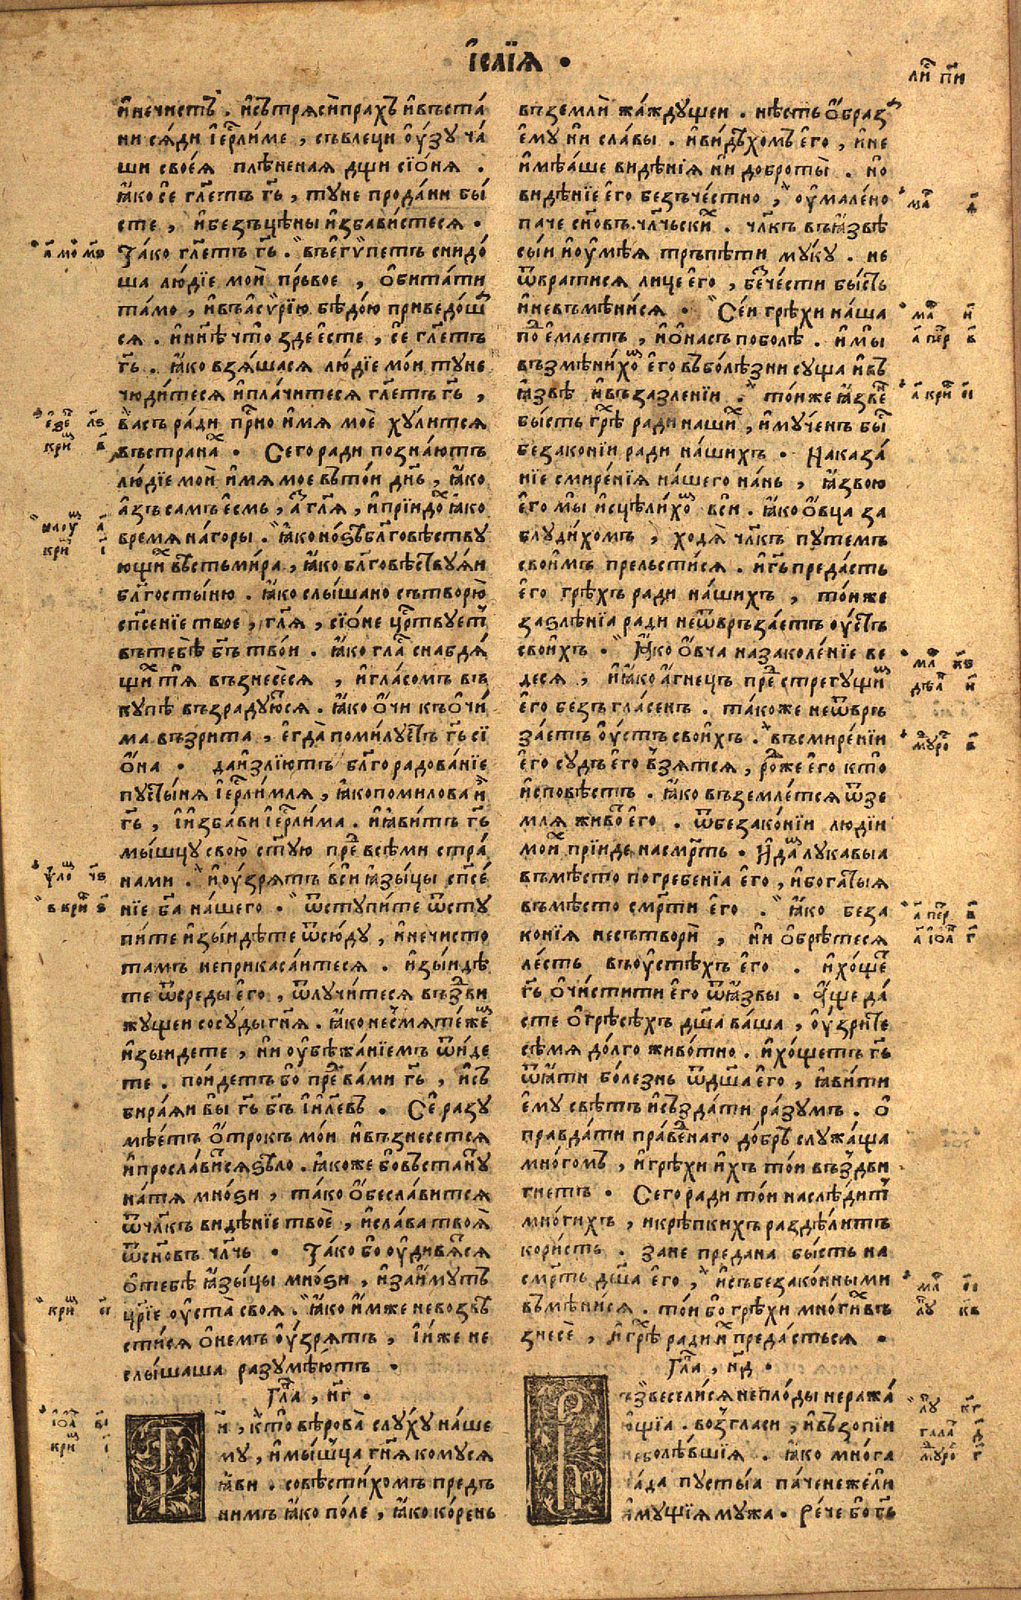 і҆саїѧ .
ли҃ п҃и
и҆нечистъ . и҆сътрѧсѝпрахъ и҆въста́
ни сѧ́ди і҆ерⷭ҇ли́ме , съвлеци о҆у́зу ча́
ши своеѧ̀ плѣне́наѧ дщи сїо́нѧ .
ꙗ҆́ко се гл҃етъ гь҃ , туне прода́ни бы́
сте , и҆безъцѣны и҆зба́вистесѧ .
Та́ко гл҃етъ гь҃ . въегѵ́петъ снидо́
ша лю́дїе моѝ пр́ьвое , о҆бита́ти
та́мо , и҆въасѵрі́ю бѣдо́ю приведо́ш
сѧ . и҆ нн҃ѣ что̀ зде естѐ , се гл҃етъ
гь҃ . ꙗ҆́ко взѧ́шасѧ лю́дїе мои̑ туне
чюди́тесѧ и҆пла́читесѧ гл҃етъ гь҃ ,
ва́съ ра́ди при́сно и҆́мѧ моѐ ху́литсѧ
въстрана̑ . Сего ра́ди позна́ютъ
лю́дїе моѝ и҆́мѧ мое въто́и дн҃ь , ꙗ҆́ко
а҆́зъ са́мъ е҆смь , а҆́ гл҃ѧ , и҆ прїидо̑ ꙗ҆́ко
вре́мѧ на́горы . ꙗ҆́ко но́ѕѣ бл҃говѣству
ющи́ въсть ми́ра , ꙗ҆́ко бл҃говѣ́ствуѧи
бл҃госты́ню . ꙗ҆́ко слы́шано сътворю̀
сп҃се́нїе твое , гл҃ѧ , сїо́не цр҃твуетъ
вътебѣ̀ бъ҃ тво́и . ꙗ҆́ко гла̑ снабдѧ́
щи тѧ̀ възне́сесѧ , и҆ гла́сомъ въ
ку́пѣ възра́дуютсѧ . ꙗ҆́ко о҆́чи къо҆чи́
ма възри́та , е҆гда̀ поми́луетъ гь҃ сї
о҆́на . да и҆злїю́тъ бл҃го ра́дованїе
пусты́нѧ і҆ерⷭ҇ли́млѧ , ꙗ҆́ко поми́лова ѝ
гь҃ , і҆ и҆зба́ви і҆ерⷭ҇ли́ма . и҆ ꙗ҆ви́тъ гь҃
мы́шцу свою̀ ст҃ую пре́ всѣ́ми стра́
нами . и҆ о҆у́зрѧтъ всѝ ꙗ҆зы́цы сп҃се́
нїе ба҃ на́шего . ѿступи́те ѿсту
пи́те и҆зы́идѣте ѿсю́ду , и҆нечисто
тамъ неприкаса́итесѧ . и҆зы́идѣ
те ѿсреды̀ е҆го , ѿлучи́тесѧ въздви
жущеи сосу́ды гн҃ѧ . ꙗ҆́ко не смѧте́же
и҆зы́идете , ни о҆убѣжа́нїемъ ѿи́де
те . по́идетъ бо пре́ ва́ми гь҃ , и҆съ
бира́ѧи вы гь҃ бъ҃ і҆и҃левъ . Сѐ разу
мѣ́етъ о҆́трокъ мои и҆възнесетсѧ
и҆просла́витсѧ ѕѣло . ꙗ҆́коже бо въста́нуⷮ
на тѧ̀ мно́ѕи , та́ко о҆бесла́витсѧ
ѿчл҃къ ви́дѣнїе твоѐ , и҆сла́ва твоѧ̀
ѿсн҃овъ чл҃чь . Та́ко бо о҆удивѧ́тсѧ
о҆тебѣ̀ ꙗ҆зы́цы мно́ѕи , и҆займу́тъ
цр҃їе о҆уста̀ своѧ . ꙗ҆́ко и҆́мже невозвѣ
сти́сѧ о҆не́мъ о҆у́зрѧтъ , і҆ и҆́же не
слы́шаша разумѣ́ютъ .
Гла̑ , н҃г .
Гй , кто̀ вѣ́рова слу́ху на́ше
му , и҆мы́шца гн҃ѧ кому́сѧ
ꙗ҆ви . совѣсти́хомъ предъ
ни́мъ ꙗ҆́ко по́ле , ꙗ҆́ко ко́рень
въземлѝ жа́ждущеи . нѣ́сть о҆́браз
е҆му ни сла́вы . и҆ви́дѣхомъ е҆го , и҆не
и҆мѣ́аше ви́дѣнїѧ ни добро́ты̀ . но
ви́дѣнїе е҆го безъче́стно , о҆умале́но
па́че сн҃овъ чл҃чьски̑ . чл҃къ въꙗ҆́звѣ
сы́и и҆о҆умѣ́ѧ тръпѣ́ти му́ку . не
ѿврати́сѧ лицѐ е҆го , бечести бы́сть
и҆невъмѣни́сѧ . Се́и грѣхѝ на́ша
по̑е́млетъ , и҆ о҆на́съ поболѣ̀ . и҆ мы̀
възмѣни́хо̑ е҆го въболѣ́зни су́ща и҆въ
ꙗ҆́звѣ и҆въазлѣнїи . то́иже ꙗ҆́звеⷩ
бы́сть грѣ̑ ра́ди на́ши̑ , и҆ му́ченъ бы̑
безако́нїи ра́ди на́шихъ . Наказа́
нїе смире́нїѧ на́шего на́нь , ꙗ҆́звою
е҆го мы̀ и҆сцѣли́хо̑ всѝ . ꙗ҆́ко о҆́вца за
блуди́хомъ , ходѧ̀ чл҃къ путе́мъ
свои́мъ прельсти́сѧ . и҆гь҃ преда́сть
е҆го̀ грѣ́хъ ра́ди на́шихъ , то́иже
заѕле́нїа ра́ди неѿвръза́етъ о҆у́стъ
свои́хъ . ꙗ҆́ко о҆вча̀ назаколе́нїе ве
десѧ , и҆ ꙗ҆́ко а҆́гнецъ пре̑ стрегу́щи̑
е҆го̀ безъгла́сенъ . та́коже неѿвръ
за́етъ о҆у́стъ свои́хъ . въсмире́нїи
е҆го̀ су́дъ е҆го̀ взѧ́тсѧ , ро̑же е҆го̀ кто̀
и҆спо́вѣсть . ꙗ҆́ко въземле́тсѧ ѿзе
млѧ̀ живо̑ е҆го . ѿбезако́нїи лю́дїи
мои̑ прїи́де на́смр҃ть . и҆да́ лука́выа
въмѣ́сто погребе́нїа е҆го , и҆бога́тыѧ
въмѣ́сто смр҃ти е҆го . ꙗ҆́ко беза
ко́нїѧ несътвори̑ , ни о҆брѣ́тесѧ
ле́сть въо҆устѣ́хъ е҆го . и҆ хо́ще
гь҃ о҆чи́стити е҆го̀ ѿꙗ҆́звы . А҆́ще да́
сте о҆грѣсѣ́хъ дш҃а ва́ша , о҆у́зрите
сѣ́мѧ до́лго живо́тно . и҆ хо́щетъ гь҃
ѿꙗ҆́ти боле́знь ѿдш҃а е҆го , ꙗ҆ви́ти
е҆му свѣ́тъ и҆създа́ти ра́зумъ . о҆
правда́ти пра́веⷣнаго до́бръ служа́ща
мно́гомъ , и҆ грѣхи и҆́хъ то́и въздви
гнетъ . Сего ра́ди то́и наслѣ́дитъ
мно́гихъ , и҆крѣ́пкихъ раздѣ́литъ
кори́сть . занѐ преда́на бы́сть на
смр҃ть дш҃а е҆го̀ , и҆събезако́нными
въмѣни́сѧ . то́и бо грѣхѝ мно́ги̑ въ
знесѐ , и҆ грѣ̑ ра́ди и̑ преда́стьсѧ .
Гла̑ , н҃д .
Възвесели́сѧ непло́ды неража́
ющїа . возгласи , и҆възопїи
неболѣ́вшїѧ . ꙗ҆́ко мно́га
ча́да пусты́ѧ па́ченежели
и҆му́щїѧ му́жа . Ре́че бо гь҃